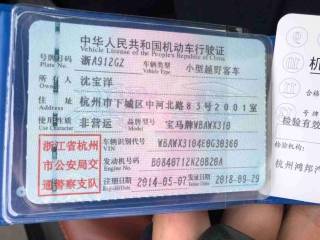 中华人民共和国机动车行驶证
Vehicle License of the People's Republic of China
号牌号码 浙A912GZ 车辆类型 小型越野客车
Plate No. Vehicle Type
所有人 沈宝洋
Owner
住址 杭州市下城区中河北路83号2001室
Address
使用性质 非营运 品牌型号 宝马牌WBAWX310
Use Character Model
浙江省杭州
市公安局交
通警察支队
车辆识别代号
VIN
发动机号码
Engine No.
注册日期 2014-05-07 发证日期
Register Date Issue Date
机
检验有效
检验机构
杭州鸿邦汽